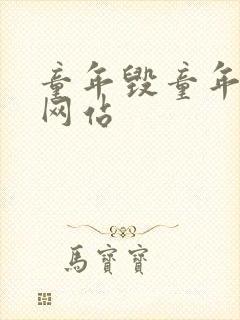 童年毁童年
网站
馬寶寶